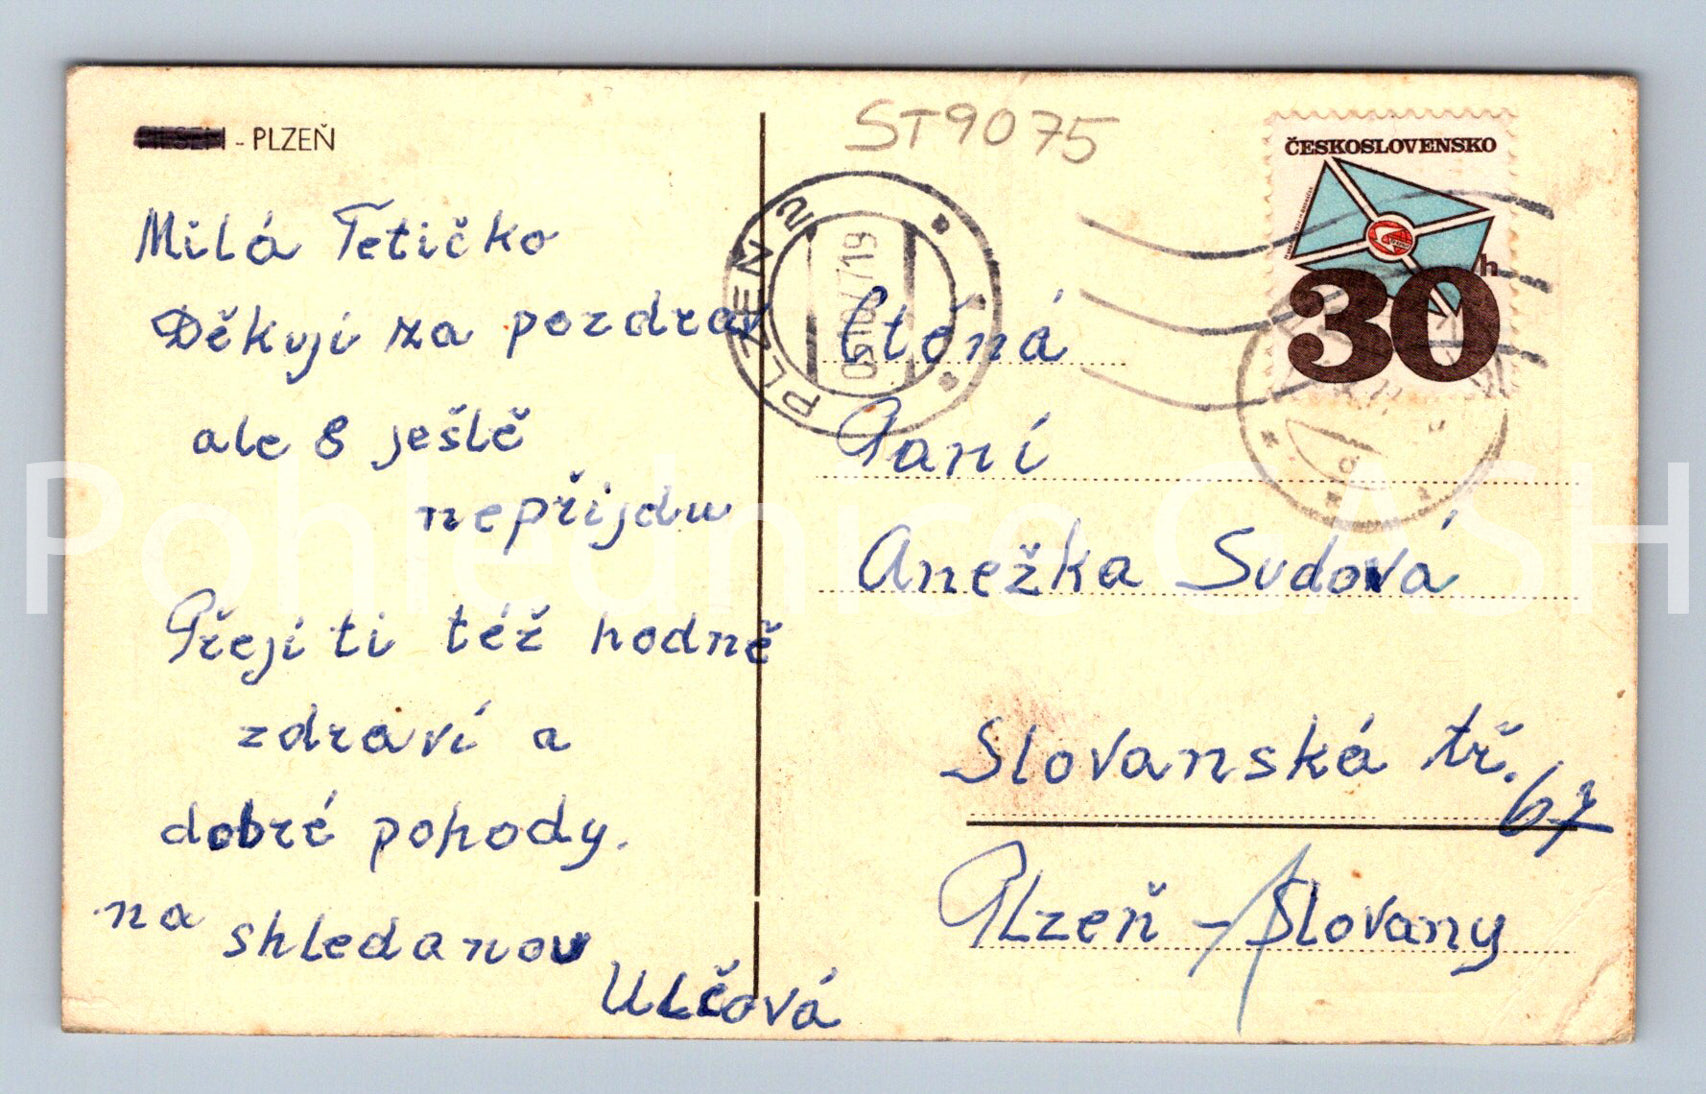 PILSEN - PLZEŇ
ST9075
ČESKOSLOVENSKO
30h
PLZEŇ 2
Milá Tetičko
Děkuji za pozdrav
ale 8 ještě
nepřijdu
Přeji ti též hodně
zdraví a
dobré pohody.
na shledanou
Ulčová
Ctěná
Paní
Anežka Sudová
Slovanská tř. 67
Plzeň - Slovany
Pohlednice GASH